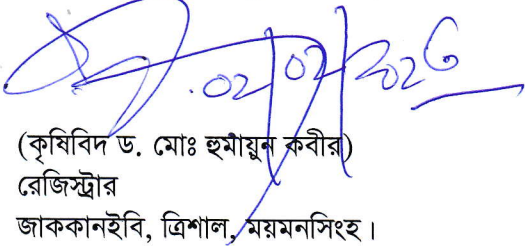 02/02/2026
(কৃষিবিদ ড. মোঃ হুমায়ুন কবীর)
রেজিস্ট্রার
জাককানইবি, ত্রিশাল, ময়মনসিংহ।